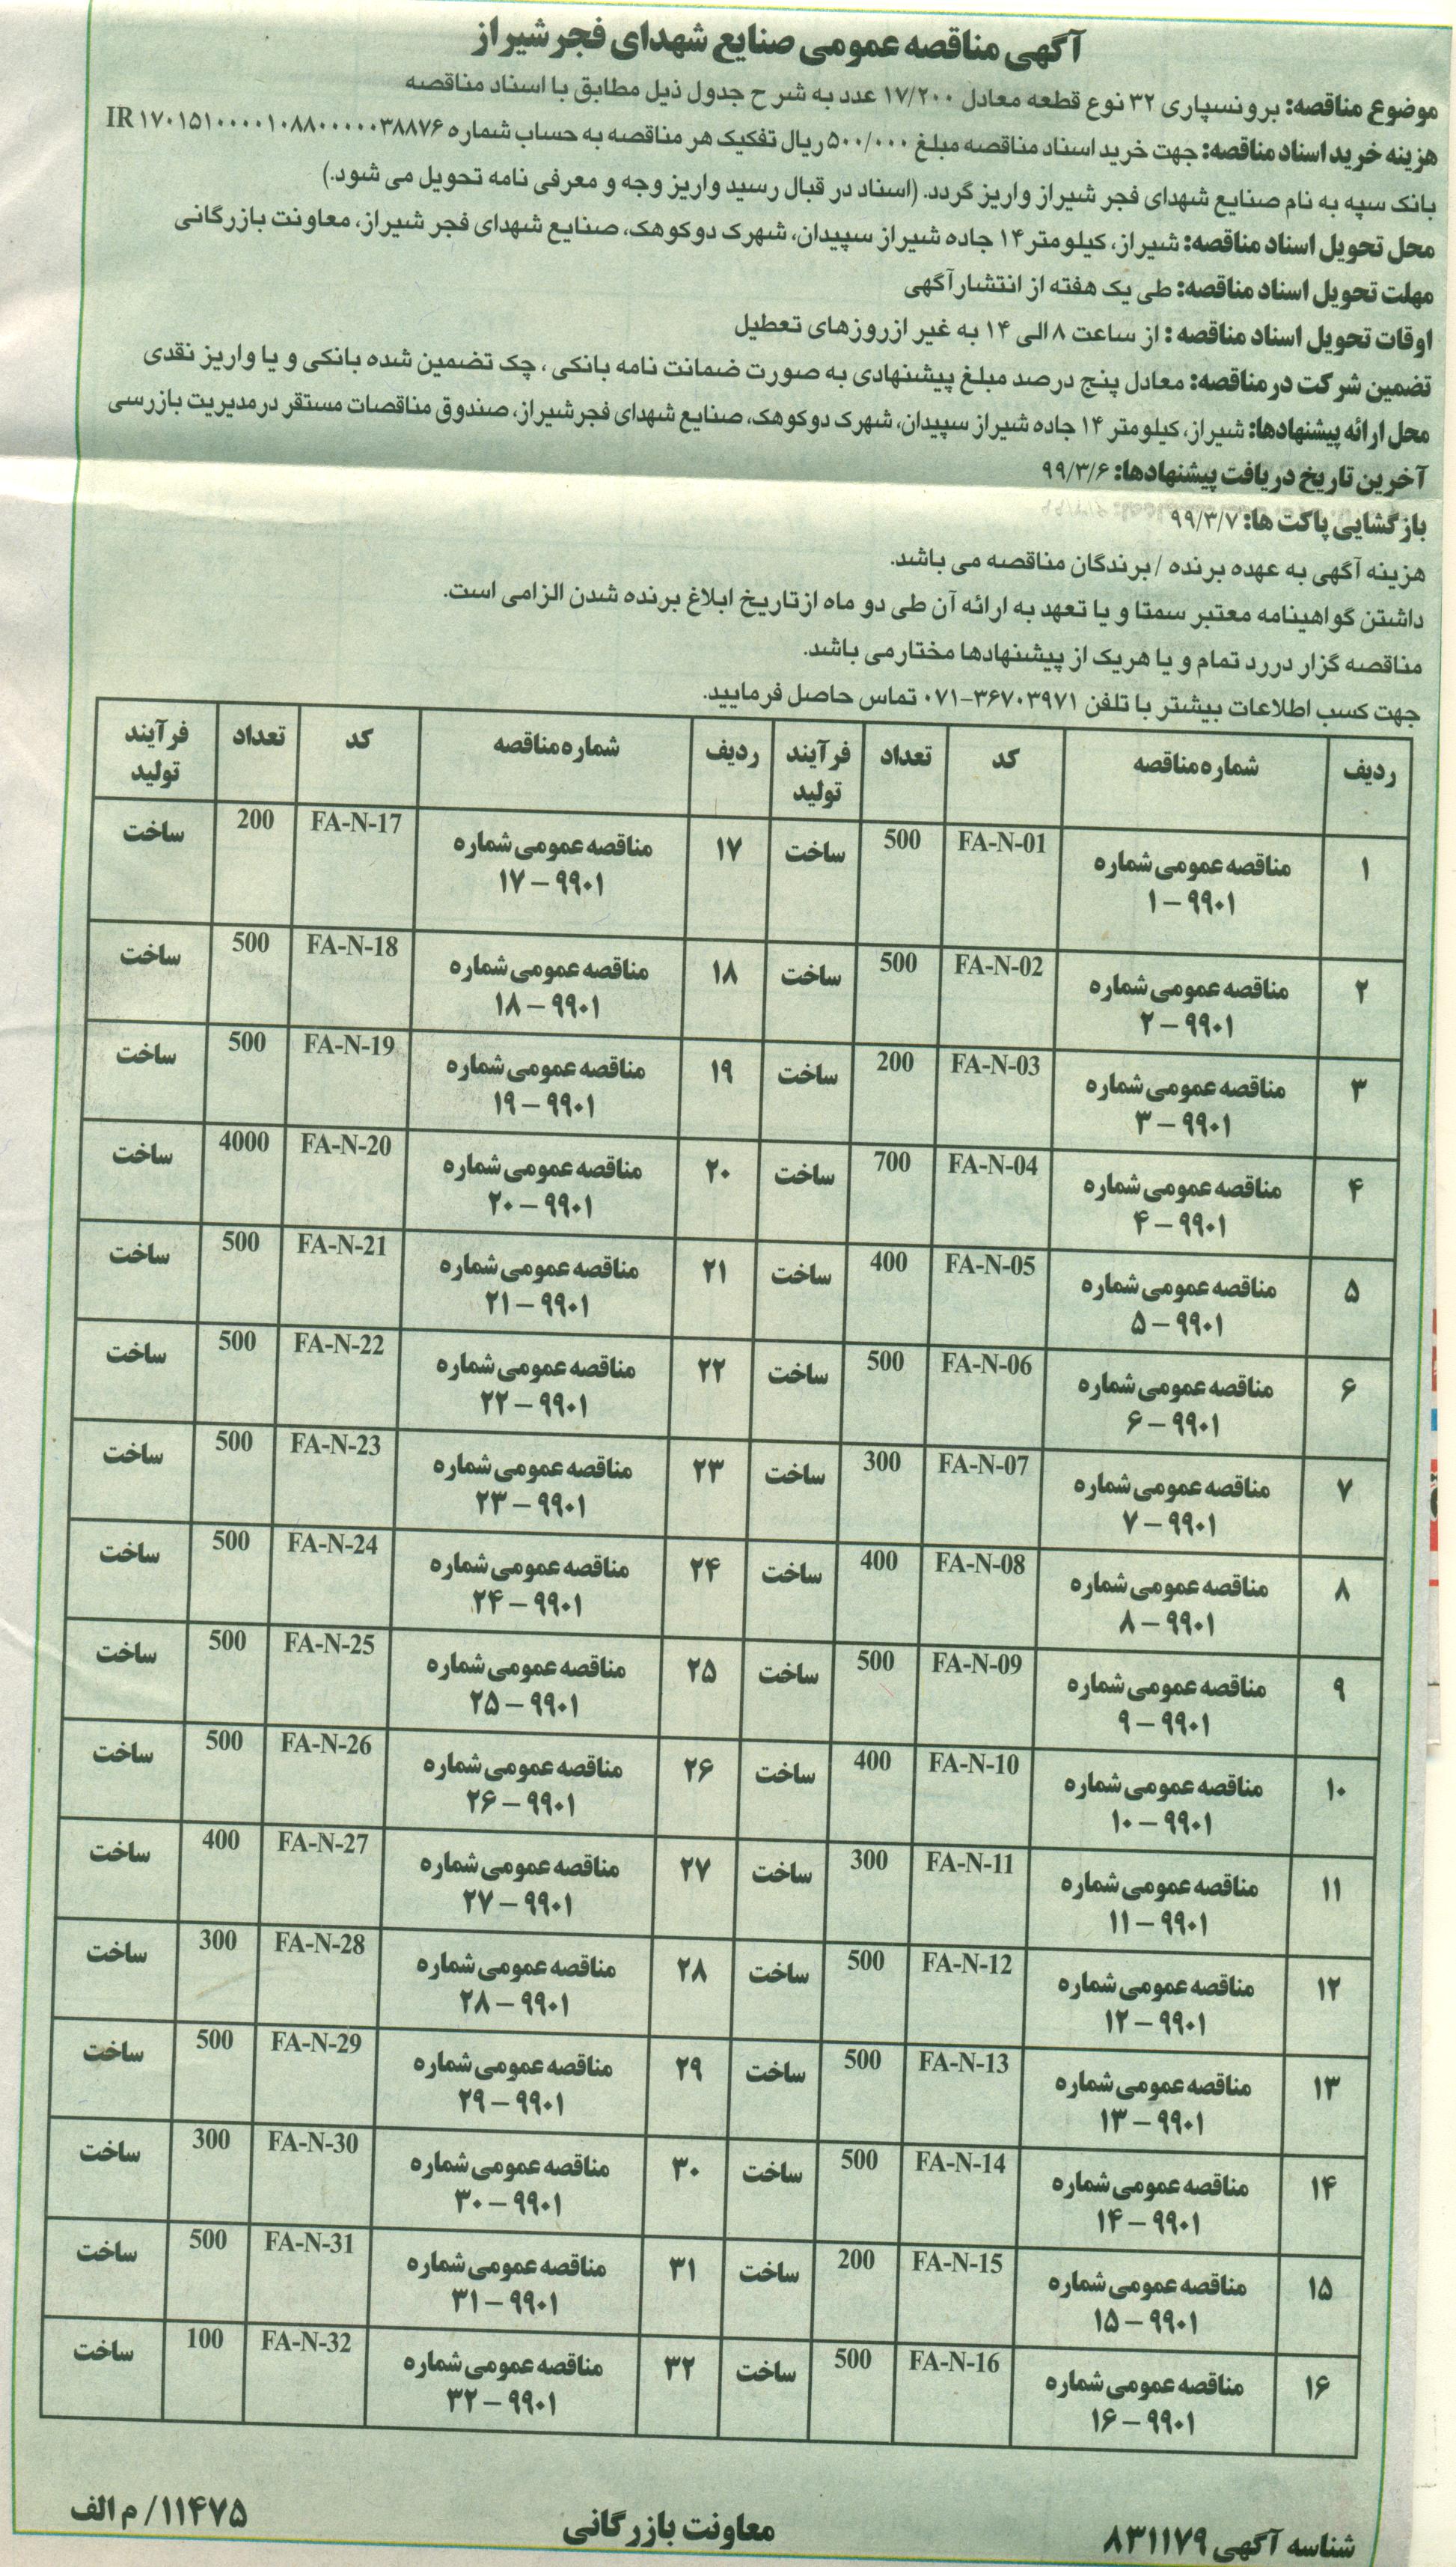 آگهی مناقصه عمومی صنایع شهدای فجر شیراز
موضوع مناقصه: برونسپاری ۳۲ نوع قطعه معادل ۱۷/۲۰۰ عدد به شرح جدول ذیل مطابق با اسناد مناقصه
هزینه خرید اسناد مناقصه: جهت خرید اسناد مناقصه مبلغ ۵۰۰/۰۰۰ ریال تفکیک هر مناقصه به حساب شماره IR ۱۷۰۱۵۱۰۰۰۰۱۰۸۸۰۰۰۰۰۳۸۸۷۶
بانک سپه به نام صنایع شهدای فجر شیراز واریز گردد. (اسناد در قبال رسید واریز وجه و معرفی نامه تحویل می شود.)
محل تحویل اسناد مناقصه: شیراز، کیلومتر ۱۴ جاده شیراز سپیدان، شهرک دوکوهک، صنایع شهدای فجر شیراز، معاونت بازرگانی
مهلت تحویل اسناد مناقصه: طی یک هفته از انتشار آگهی
اوقات تحویل اسناد مناقصه : از ساعت ۸ الی ۱۴ به غیر از روزهای تعطیل
تضمین شرکت در مناقصه: معادل پنج درصد مبلغ پیشنهادی به صورت ضمانت نامه بانکی ، چک تضمین شده بانکی و یا واریز نقدی
محل ارائه پیشنهادها: شیراز، کیلومتر ۱۴ جاده شیراز سپیدان، شهرک دوکوهک، صنایع شهدای فجر شیراز، صندوق مناقصات مستقر در مدیریت بازرسی
آخرین تاریخ دریافت پیشنهادها: ۹۹/۳/۶
بازگشایی پاکت ها: ۹۹/۳/۷
هزینه آگهی به عهده برنده / برندگان مناقصه می باشد.
داشتن گواهینامه معتبر سمتا و یا تعهد به ارائه آن طی دو ماه از تاریخ ابلاغ برنده شدن الزامی است.
مناقصه گزار در رد تمام و یا هریک از پیشنهادها مختار می باشد.
جهت کسب اطلاعات بیشتر با تلفن ۳۶۷۰۳۹۷۱-۰۷۱ تماس حاصل فرمایید.
ردیف شماره مناقصه کد تعداد فرآیند تولید ردیف شماره مناقصه کد تعداد فرآیند تولید
۱ مناقصه عمومی شماره ۹۹۰۱ – ۱ FA-N-01 500 ساخت ۱۷ مناقصه عمومی شماره ۹۹۰۱ – ۱۷ FA-N-17 200 ساخت
۲ مناقصه عمومی شماره ۹۹۰۱ – ۲ FA-N-02 500 ساخت ۱۸ مناقصه عمومی شماره ۹۹۰۱ – ۱۸ FA-N-18 500 ساخت
۳ مناقصه عمومی شماره ۹۹۰۱ – ۳ FA-N-03 200 ساخت ۱۹ مناقصه عمومی شماره ۹۹۰۱ – ۱۹ FA-N-19 500 ساخت
۴ مناقصه عمومی شماره ۹۹۰۱ – ۴ FA-N-04 700 ساخت ۲۰ مناقصه عمومی شماره ۹۹۰۱ – ۲۰ FA-N-20 4000 ساخت
۵ مناقصه عمومی شماره ۹۹۰۱ – ۵ FA-N-05 400 ساخت ۲۱ مناقصه عمومی شماره ۹۹۰۱ – ۲۱ FA-N-21 500 ساخت
۶ مناقصه عمومی شماره ۹۹۰۱ – ۶ FA-N-06 500 ساخت ۲۲ مناقصه عمومی شماره ۹۹۰۱ – ۲۲ FA-N-22 500 ساخت
۷ مناقصه عمومی شماره ۹۹۰۱ – ۷ FA-N-07 300 ساخت ۲۳ مناقصه عمومی شماره ۹۹۰۱ – ۲۳ FA-N-23 500 ساخت
۸ مناقصه عمومی شماره ۹۹۰۱ – ۸ FA-N-08 400 ساخت ۲۴ مناقصه عمومی شماره ۹۹۰۱ – ۲۴ FA-N-24 500 ساخت
۹ مناقصه عمومی شماره ۹۹۰۱ – ۹ FA-N-09 500 ساخت ۲۵ مناقصه عمومی شماره ۹۹۰۱ – ۲۵ FA-N-25 500 ساخت
۱۰ مناقصه عمومی شماره ۹۹۰۱ – ۱۰ FA-N-10 400 ساخت ۲۶ مناقصه عمومی شماره ۹۹۰۱ – ۲۶ FA-N-26 500 ساخت
۱۱ مناقصه عمومی شماره ۹۹۰۱ – ۱۱ FA-N-11 300 ساخت ۲۷ مناقصه عمومی شماره ۹۹۰۱ – ۲۷ FA-N-27 400 ساخت
۱۲ مناقصه عمومی شماره ۹۹۰۱ – ۱۲ FA-N-12 500 ساخت ۲۸ مناقصه عمومی شماره ۹۹۰۱ – ۲۸ FA-N-28 300 ساخت
۱۳ مناقصه عمومی شماره ۹۹۰۱ – ۱۳ FA-N-13 500 ساخت ۲۹ مناقصه عمومی شماره ۹۹۰۱ – ۲۹ FA-N-29 500 ساخت
۱۴ مناقصه عمومی شماره ۹۹۰۱ – ۱۴ FA-N-14 500 ساخت ۳۰ مناقصه عمومی شماره ۹۹۰۱ – ۳۰ FA-N-30 300 ساخت
۱۵ مناقصه عمومی شماره ۹۹۰۱ – ۱۵ FA-N-15 200 ساخت ۳۱ مناقصه عمومی شماره ۹۹۰۱ – ۳۱ FA-N-31 500 ساخت
۱۶ مناقصه عمومی شماره ۹۹۰۱ – ۱۶ FA-N-16 500 ساخت ۳۲ مناقصه عمومی شماره ۹۹۰۱ – ۳۲ FA-N-32 100 ساخت
شناسه آگهی ۸۳۱۱۷۹ معاونت بازرگانی ۱۱۴۷۵/ م الف